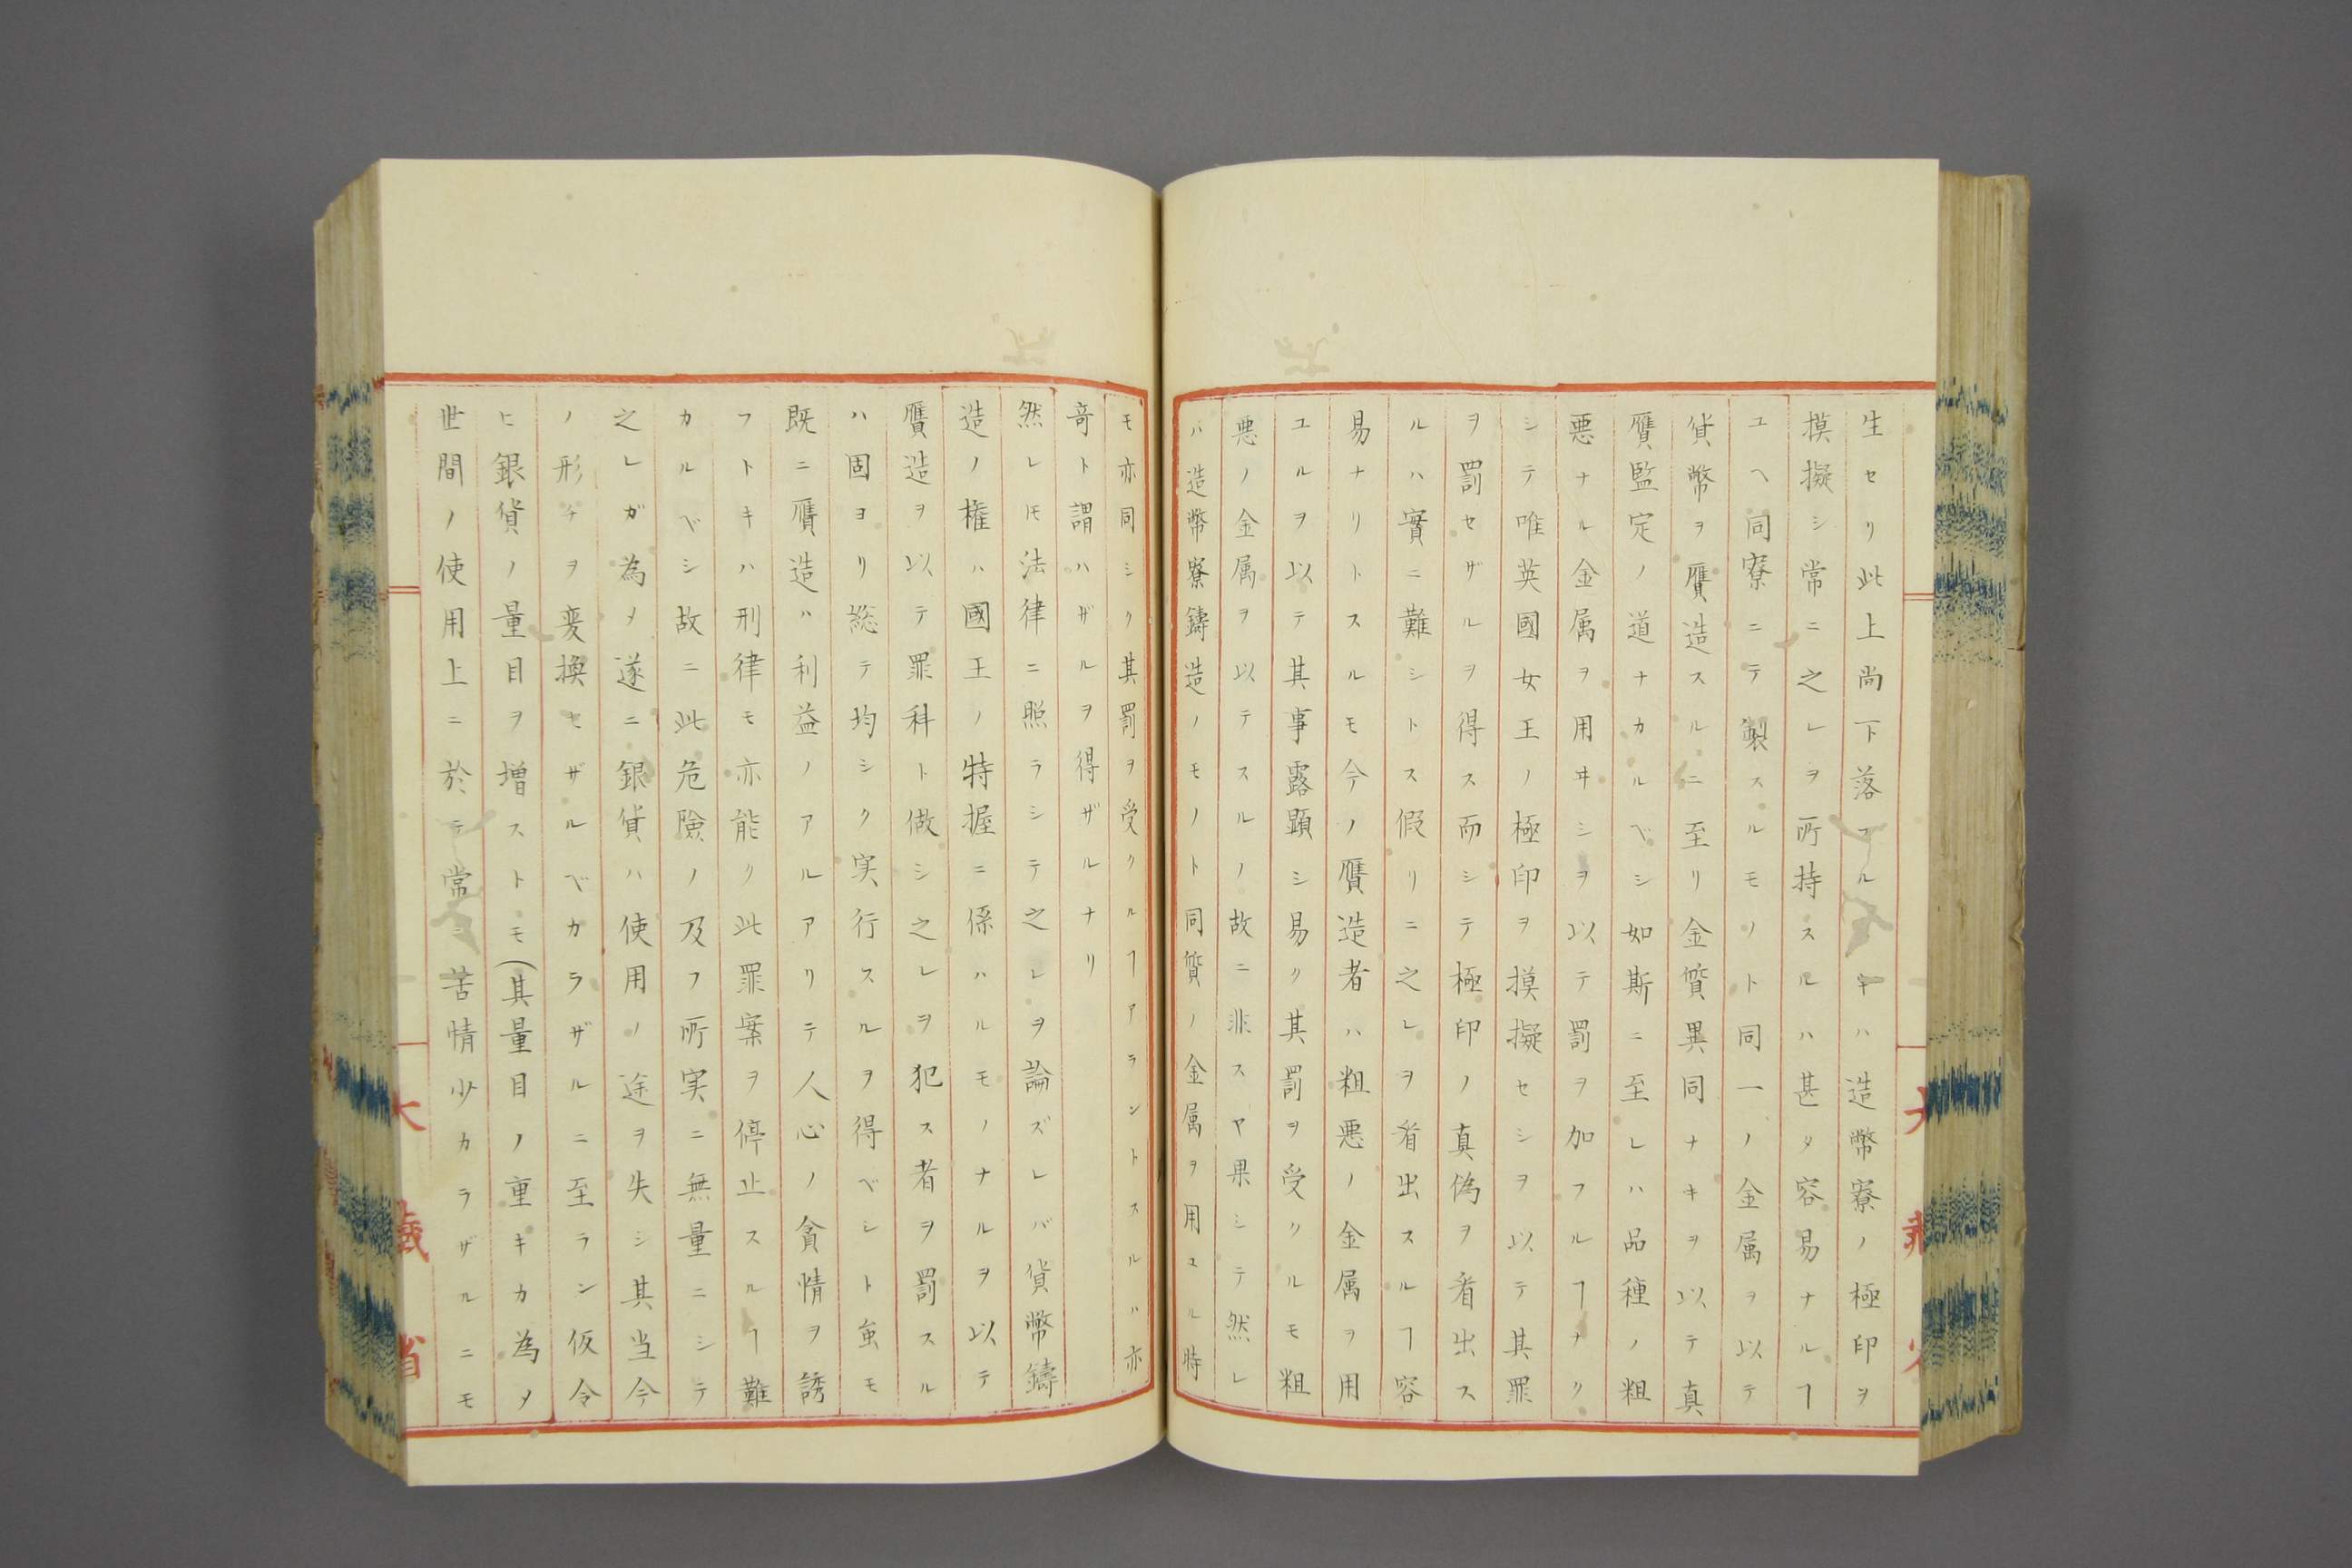 生セリ此上尚下落スルキハ造幣寮ノ極印ヲ
摸擬シ常ニ之レヲ所持スルハ甚タ容易ナルヿ
ユヘ同寮ニテ製スルモノト同一ノ金属ヲ以テ
貨幣ヲ贋造スルニ至リ金質異同ナキヲ以テ真
贋監定ノ道ナカルベシ如斯ニ至レハ品種ノ粗
悪ナル金属ヲ用ヰシヲ以テ罰ヲ加フルヿナク
シテ唯英國女王ノ極印ヲ摸擬セシヲ以テ其罪
ヲ罰セザルヲ得ス而シテ極印ノ真偽ヲ看出ス
ルハ實ニ難シトス假リニ之レヲ看出スルヿ容
易ナリトスルモ今ノ贋造者ハ粗悪ノ金属ヲ用
ユルヲ以テ其事露顕シ易ク其罰ヲ受クルモ粗
悪ノ金属ヲ以テスルノ故ニ非スヤ果シテ然レ
バ造幣寮鋳造ノモノト同質ノ金属ヲ用ユル時
モ亦同シク其罰ヲ受クルヿアラントスルハ亦
奇ト謂ハザルヲ得ザルナリ
然レ𪜈法律ニ照ラシテ之レヲ論ズレバ貨幣鑄
造ノ権ハ國王ノ特握ニ係ハルモノナルヲ以テ
贋造ヲ以テ罪科ト做シ之レヲ犯ス者ヲ罰スル
ハ固ヨリ総テ均シク実行スルヲ得ベシト虽モ
既ニ贋造ハ利益ノアルアリテ人心ノ貪情ヲ誘
フトキハ刑律モ亦能ク此罪案ヲ停止スルヿ難
カルベシ故ニ此危險ノ及フ所実ニ無量ニシテ
之レガ為メ遂ニ銀貨ハ使用ノ途ヲ失シ其当今
ノ形チヲ変換セザルベカラザルニ至ラン仮令
ヒ銀貨ノ量目ヲ増ストモ(其量目ノ重キカ為メ
世間ノ使用上ニ於テ常ニ苦情少カラザルニモ
大藏省